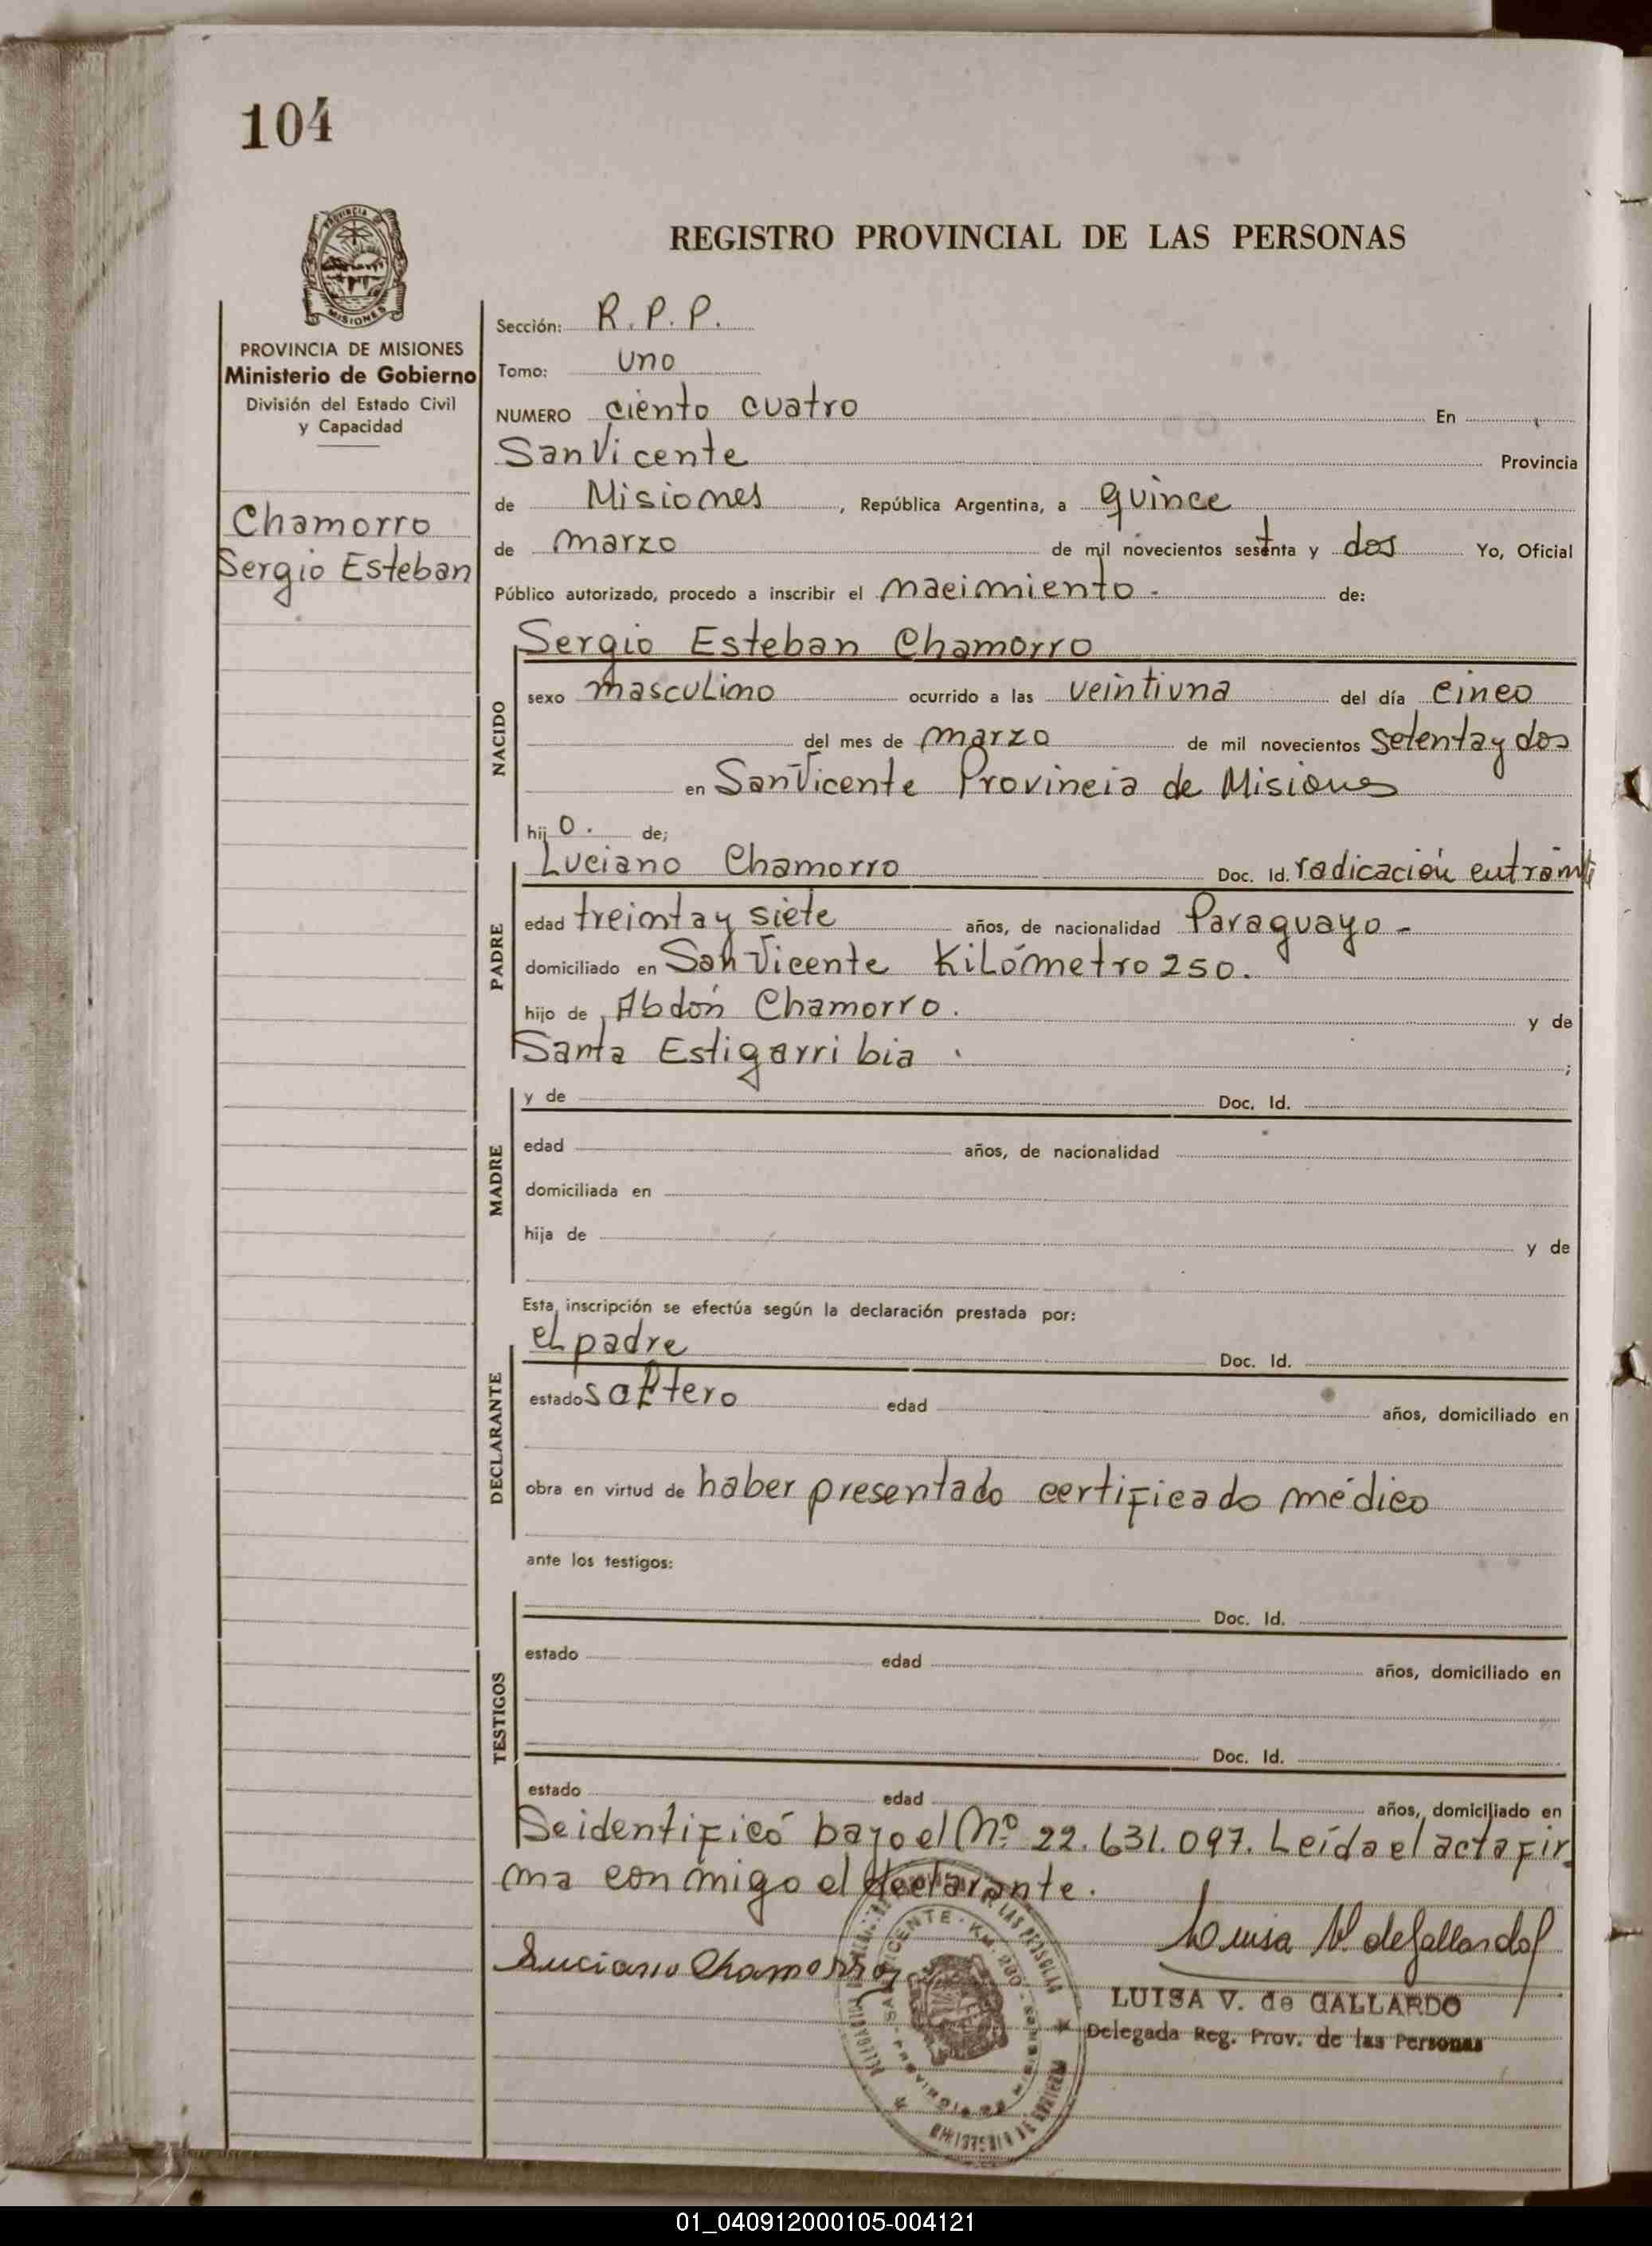 104
REGISTRO PROVINCIAL DE LAS PERSONAS
PROVINCIA DE MISIONES
Ministerio de Gobierno
División del Estado Civil
y Capacidad
Chamorro
Sergio Esteban
Sección: R. P. P.
Tomo: uno
NUMERO ciento cuatro En
San Vicente Provincia
de Misiones, República Argentina, a quince
de marzo de mil novecientos setenta y dos Yo, Oficial
Público autorizado, procedo a inscribir el nacimiento. de:
NACIDO
Sergio Esteban Chamorro
sexo masculino ocurrido a las veintiuna del día cinco
del mes de marzo de mil novecientos setenta y dos
en San Vicente Provincia de Misiones
hijo. de;
PADRE
Luciano Chamorro Doc. Id. radicación en trámite
edad treinta y siete años, de nacionalidad Paraguayo -
domiciliado en San Vicente Kilómetro 250.
hijo de Abdón Chamorro. y de
Santa Estigarribia ;
MADRE
y de Doc. Id.
edad años, de nacionalidad
domiciliada en
hija de y de
Esta inscripción se efectúa según la declaración prestada por:
DECLARANTE
el padre Doc. Id.
estado soltero edad años, domiciliado en
obra en virtud de haber presentado certificado médico
ante los testigos:
TESTIGOS
Doc. Id.
estado edad años, domiciliado en
Doc. Id.
estado edad años, domiciliado en
Se identificó bajo el Nº 22.631.097. Leída el acta fir
ma conmigo el declarante.
Luciano Chamorro
Luisa V. de Gallardo
LUISA V. de GALLARDO
Delegada Reg. Prov. de las Personas
01_040912000105-004121